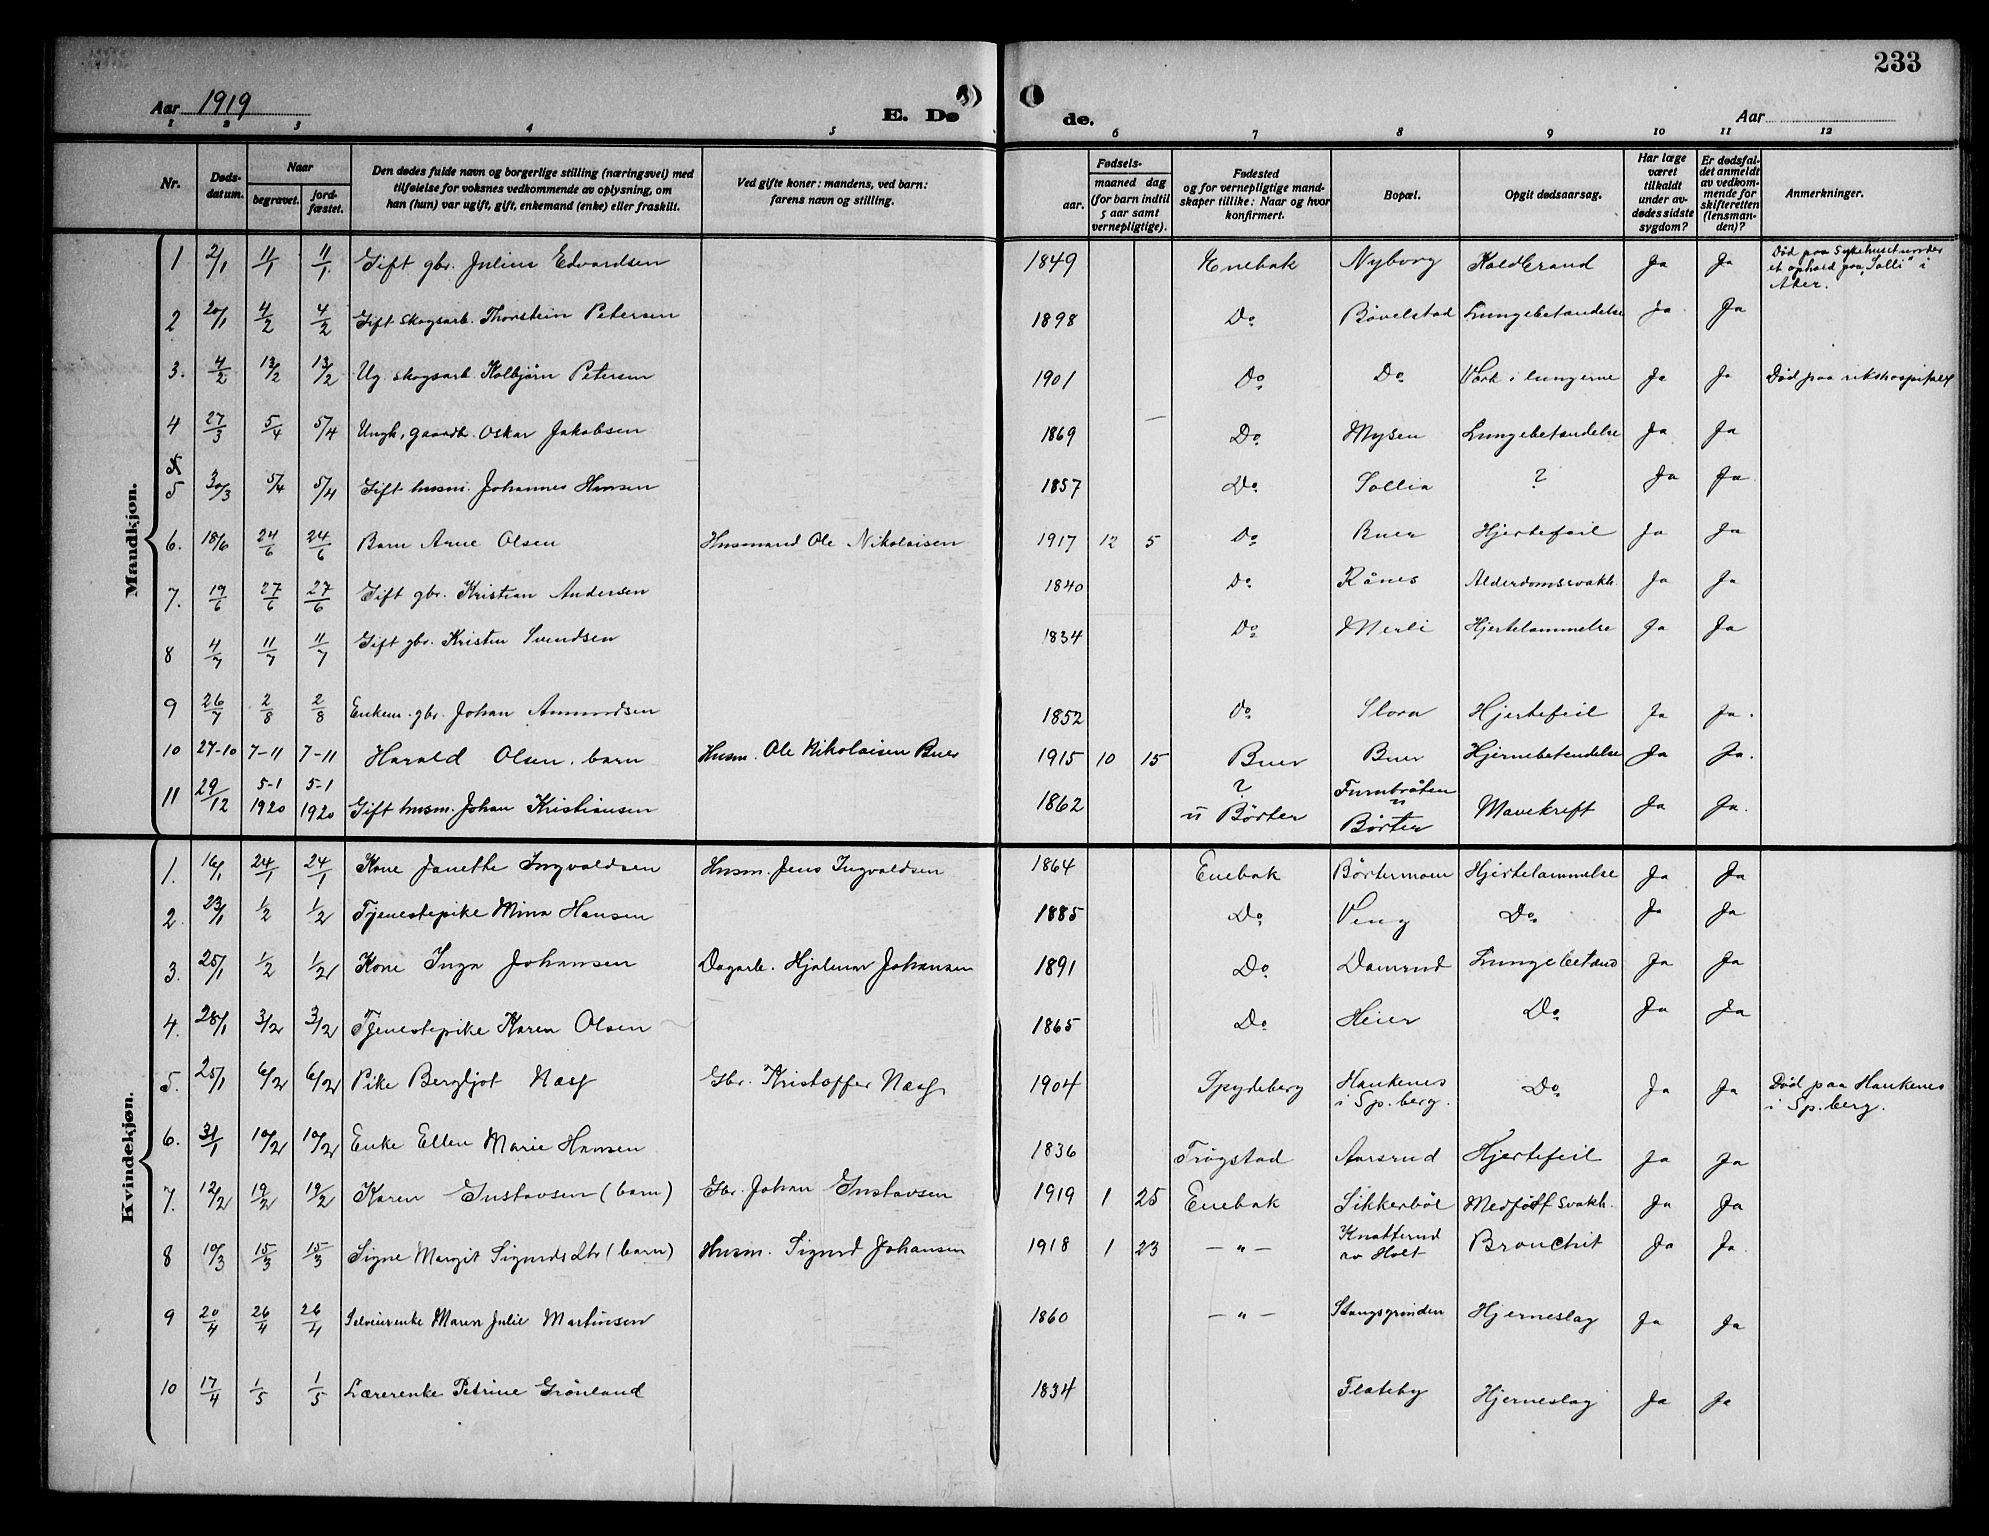 233
Aar 1919 E. Dø de. Aar
1 2 3 4 5 6 7 8 9 10 11 12
Nr. Døds-datum. Naar begravet. jord-fæstet. Den dødes fulde navn og borgerlige stilling (næringsvei) med tilføielse for voksnes vedkommende av oplysning, om han (hun) var ugift, gift, enkemand (enke) eller fraskilt. Ved gifte koner: mandens, ved barn: farens navn og stilling. Fødsels- aar. maaned dag (for barn indtil 5 aar samt vernepligtige). Fødested og for vernepligtige mand-skaper tillike: Naar og hvor konfirmert. Bopæl. Opgit dødsaarsag. Har læge været tilkaldt under av-dødes sidste sygdom? Er dødsfal-det anmeldt av vedkom-mende for skifteretten (lensman-den)? Anmerkninger.
Mandkjøn.
1 2/1 11/1 11/1 Gift gbr. Julius Edvardsen 1849 Enebak Nyborg Koldbrand Ja Ja Død paa Sykehuset under et ophold paa "Solli" i Aker.
2 20/1 4/2 4/2 Gift skogsarb. Thorstein Petersen 1898 Do Bøvelstad Lungebetændelse Ja Ja
3. 4/2 13/2 13/2 Ug. skogsarb. Kolbjørn Petersen 1901 Do Do Værk i lungerne Ja Ja Død paa rikshospitalet
4 27/3 5/4 5/4 Ungk. gaardbr. Oskar Jakobsen 1869 Do Mysen Lungebetændelse Ja Ja
5 30/3 5/4 5/4 Gift husm. Johannes Hansen 1857 Do Sollia ? Ja Ja
6. 18/6 24/6 24/6 Barn Arne Olsen Husmand Ole Nikolaisen 1917 12 5 Do Buer Hjertefeil Ja Ja
7. 19/6 27/6 27/6 Gift gbr. Kristian Andersen 1840 Do Rånes Alderdomssvakh. Ja Ja
8 4/7 11/7 11/7 Gift gbr. Kristen Svendsen 1834 Do Merli Hjertelammelse Ja Ja
9 26/7 2/8 2/8 Enkem. gbr. Johan Amundsen 1852 Do Slora Hjertefeil Ja Ja.
10 27-10 7-11 7-11 Harald Olsen, barn Husm. Ole Nikolaisen Buer 1915 10 15 Buer Buer Hjernebetændelse Ja Ja.
11 29/12 5-1 1920 5-1 1920 Gift husm. Johan Kristiansen 1862 ? u Børter Furubråten u Børter Mavekreft Ja Ja.
Kvindekjøn.
1. 16/1 24/1 24/1 Kone Janette Ingvaldsen Husm. Jens Ingvaldsen 1864 Enebak Børtermoen Hjertelammelse Ja Ja
2. 23/1 1/2 1/2 Tjenestepike Mina Hansen 1885 Do Veng Do Ja Ja
3. 25/1 1/2 1/2 Kone Inga Johansen Dagarb. Hjalmar Johansen 1891 Do Damrud Lungebetænd Ja Ja
4. 28/1 3/2 3/2 Tjenestepike Karen Olsen 1865 Do Heier Do Ja Ja
5. 25/1 6/2 6/2 Pike Bergljot Næss Gbr. Kristoffer Næss 1904 Spydeberg Haukenes i Sp.berg. Do Ja Ja Død paa Haukenes i Sp.berg.
6. 31/1 10/2 10/2 Enke Ellen Marie Hansen 1836 Trøgstad Aarsrud Hjertefeil Ja Ja
7. 12/2 19/2 19/2 Karen Gustavsen (barn) Gbr. Johan Gustavsen 1919 1 25 Enebak Sikkerbøl Medfødt svakh. Ja Ja
8 10/3 15/3 15/3 Signe Margit Sigurds dtr (barn) Husm. Sigurd Johansen 1918 1 23 — " — Knatterud av Holt Bronchit Ja Ja
9 20/4 26/4 26/4 Selveierenke Maren Julie Martinsen 1860 — " — Stangsgrinden Hjerneslag Ja Ja
10 17/4 1/5 1/5 Lærerenke Petrine Grønland 1834 Flateby Hjerneslag Ja Ja